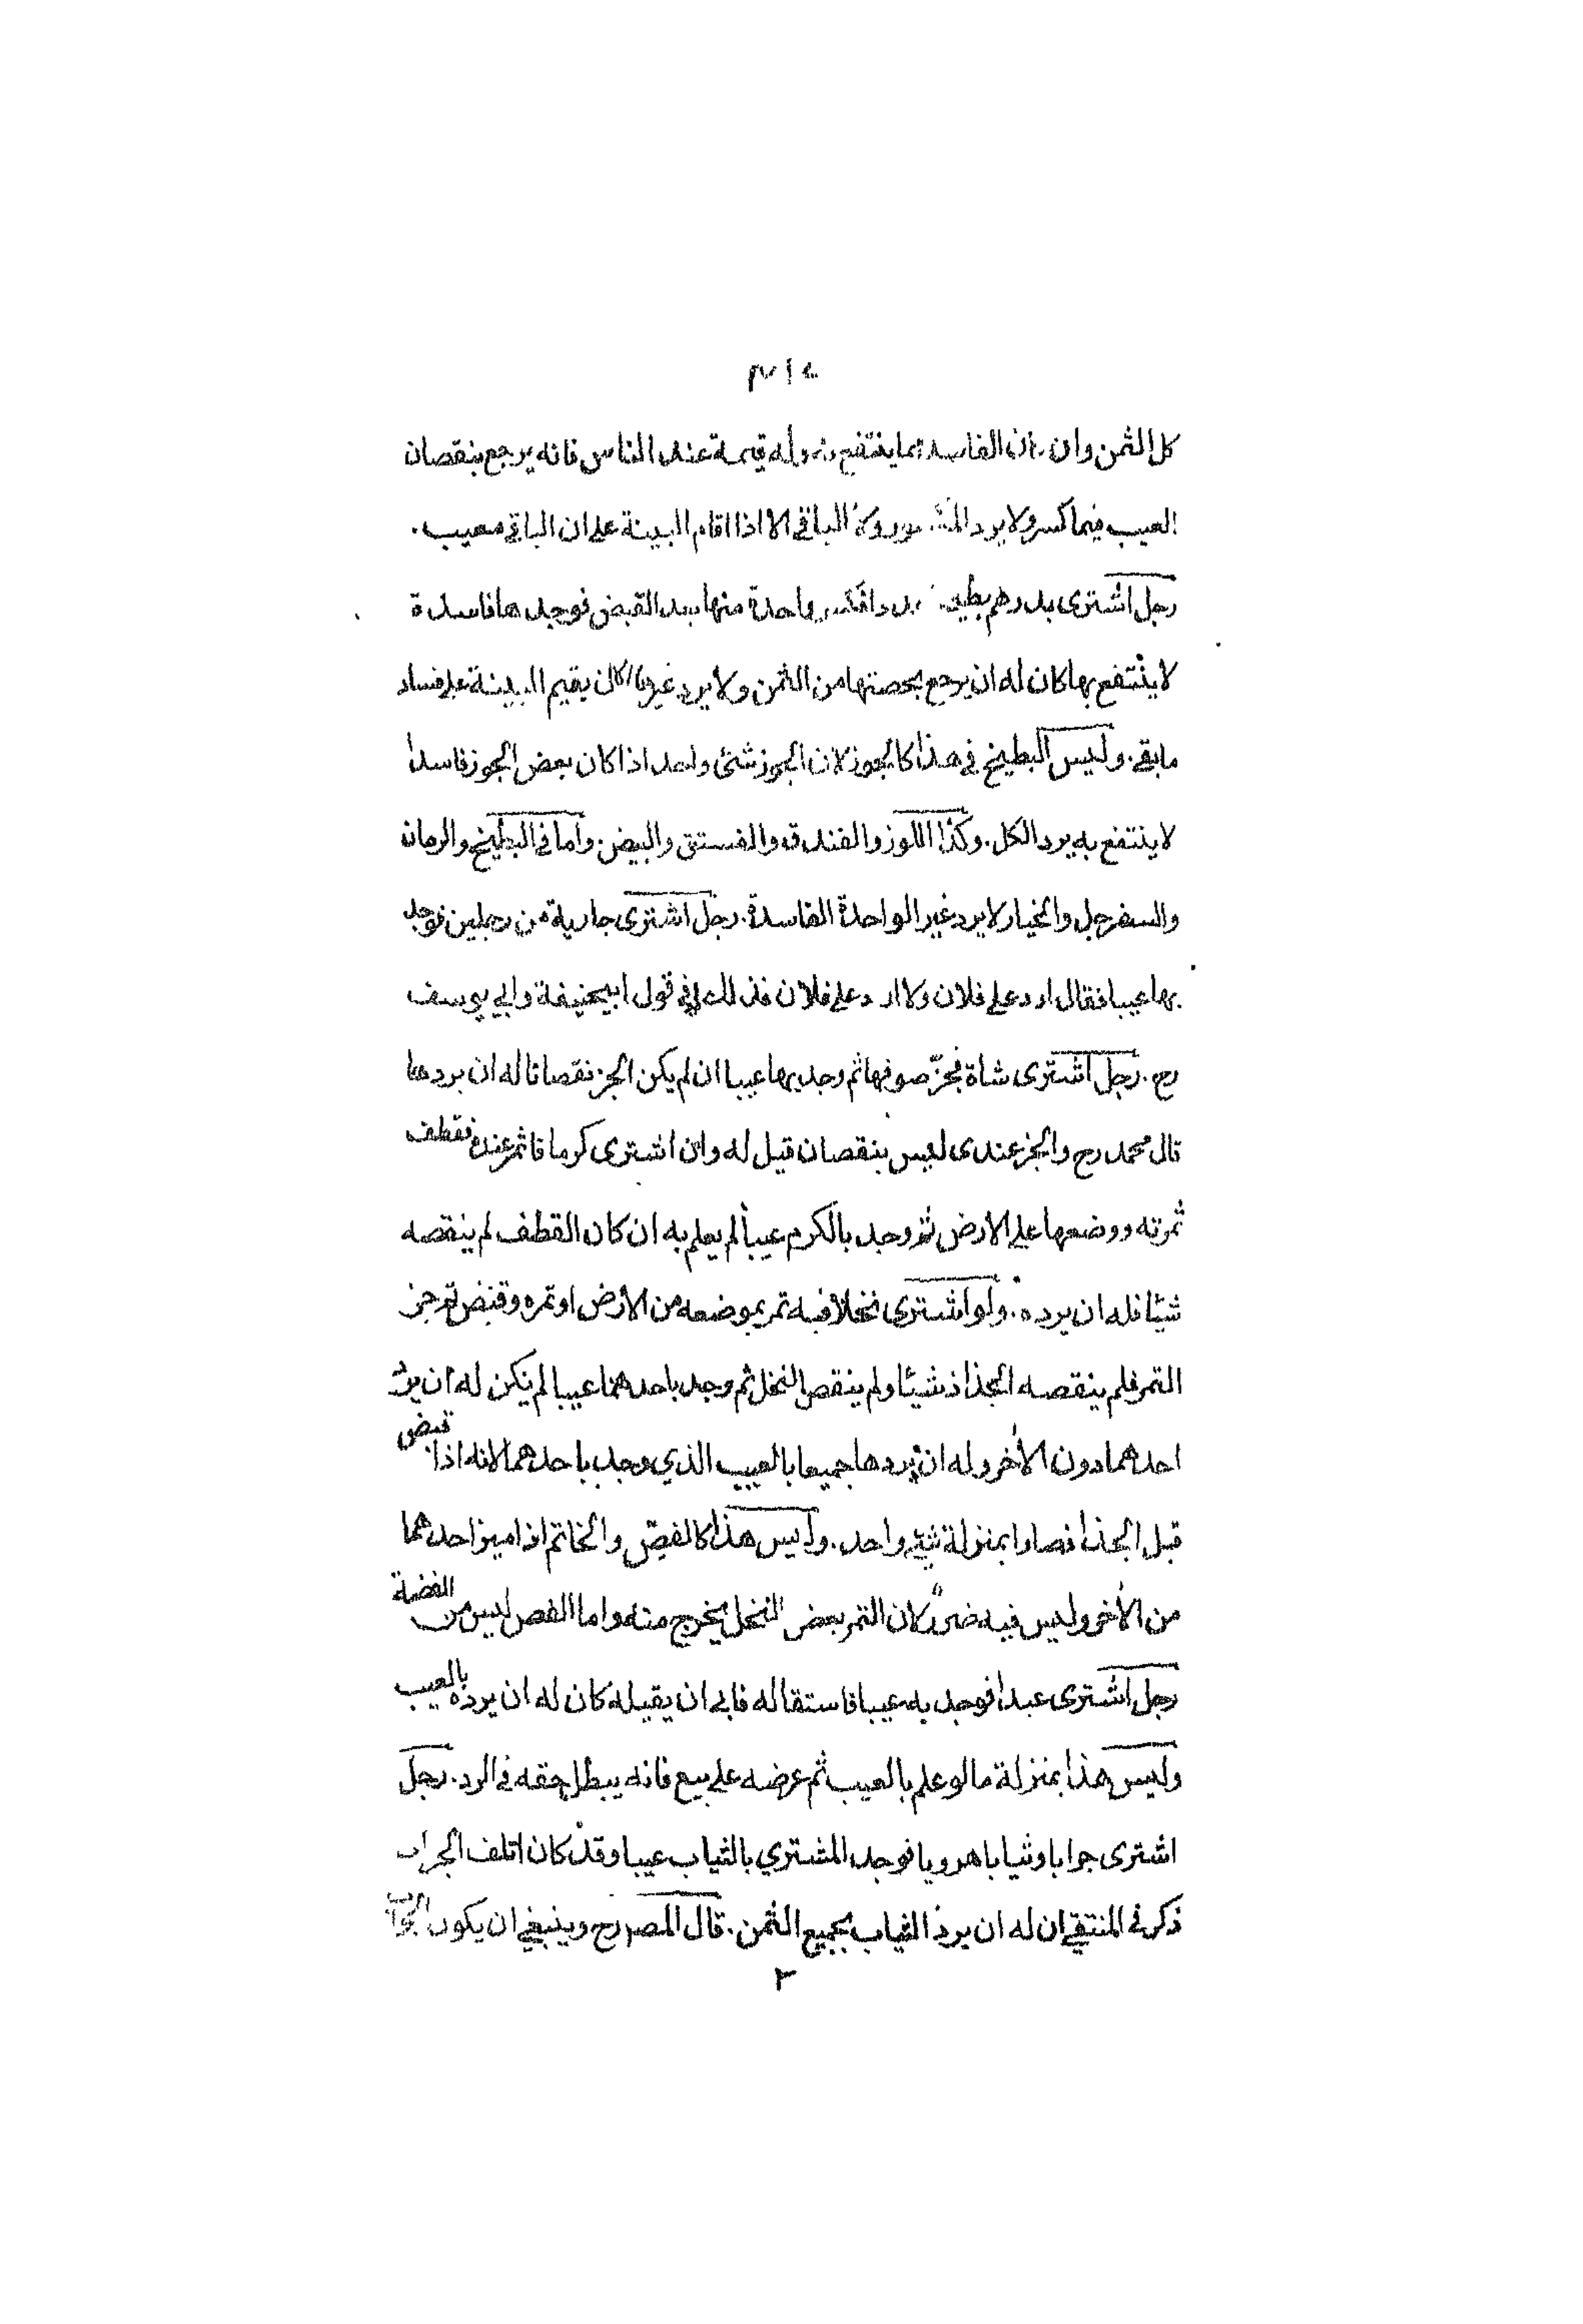 كل الثمن وان كان الفاسد مما ينتفع به وله قيمة عند الناس فانه يرجع بنقصان
العيب فيما كسر ولا يرد المكسور ولا الباقي الا اذا اقام البينة على ان الباقي معيب .
رجل اشترى بدرهم بطيخا فكسر واحدة منها بعد القبض فوجدها فاسدة
لا ينتفع بها كان له ان يرجع بحصتها من الثمن ولا يرد غيرها الا ان يقيم البينة على فساد
ما بقي . وليس البطيخ في هذا كالجوز لان الجوز شئ واحد اذا كان بعض الجوز فاسدا
لا ينتفع به يرد الكل . وكذا اللوز والفندق والفستق والبيض . واما في البطيخ والرمان
والسفرجل والخيار لا يرد غير الواحدة الفاسدة . رجل اشترى جارية من رجلين فوجد
بها عيبا فقال ارد على فلان ولا ارد على فلان فذلك له في قول ابيحنيفة وابي يوسف
رح . رجل اشترى شاة فجزّ صوفها ثم وجد بها عيبا ان لم يكن الجز نقصانا له ان يردها
قال محمد رح والجز عندى ليس بنقصان قيل له وان اشترى كرما فاثمر عنده فقطف
ثمرته ووضعها على الارض ثم وجد بالكرم عيبا لم يعلم به ان كان القطف لم ينقصه
شيئا فله ان يرده . ولو اشترى نخلا فيه تمر بموضعه من الارض او تمره وقبض ثم جز
التمر فلم ينقصه الجذاذ شيئا ولم ينقص النخل ثم وجد باحدهما عيبا لم يكن له ان يرد
احدهما دون الأخر وله ان يردها جميعا بالعيب الذي وجد باحدهما لانه اذا قبض
قبل الجذاذ صارا بمنزلة شئ واحد . وليس هذا كالفصّ والخاتم اذا ميز احدهما
من الأخر وليس فيه ضرر لان التمر بعض النخل يخرج منه واما الفص ليس من الفضة
رجل اشترى عبدا فوجد به عيبا فاستقاله فابى ان يقيله كان له ان يرده بالعيب
وليس هذا بمنزلة ما لو علم بالعيب ثم عرضه على بيع فانه يبطل حقه في الرد . رجل
اشترى جرابا وثيابا هرويا فوجد المشتري بالثياب عيبا وقد كان اتلف الجراب
ذكر في المنتقى ان له ان يرد الثياب بجميع الثمن . قال المصر رح وينبغي ان يكون الجواب